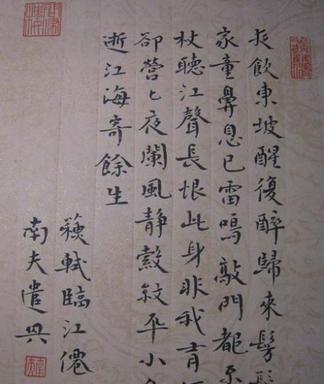 夜飲東坡醒復醉歸來髣
家童鼻息已雷鳴敲門都不
杖聽江聲長恨此身非我有何
卻營〻夜闌風靜縠紋平小
逝江海寄餘生
蘓軾臨江僊
南夫遣興